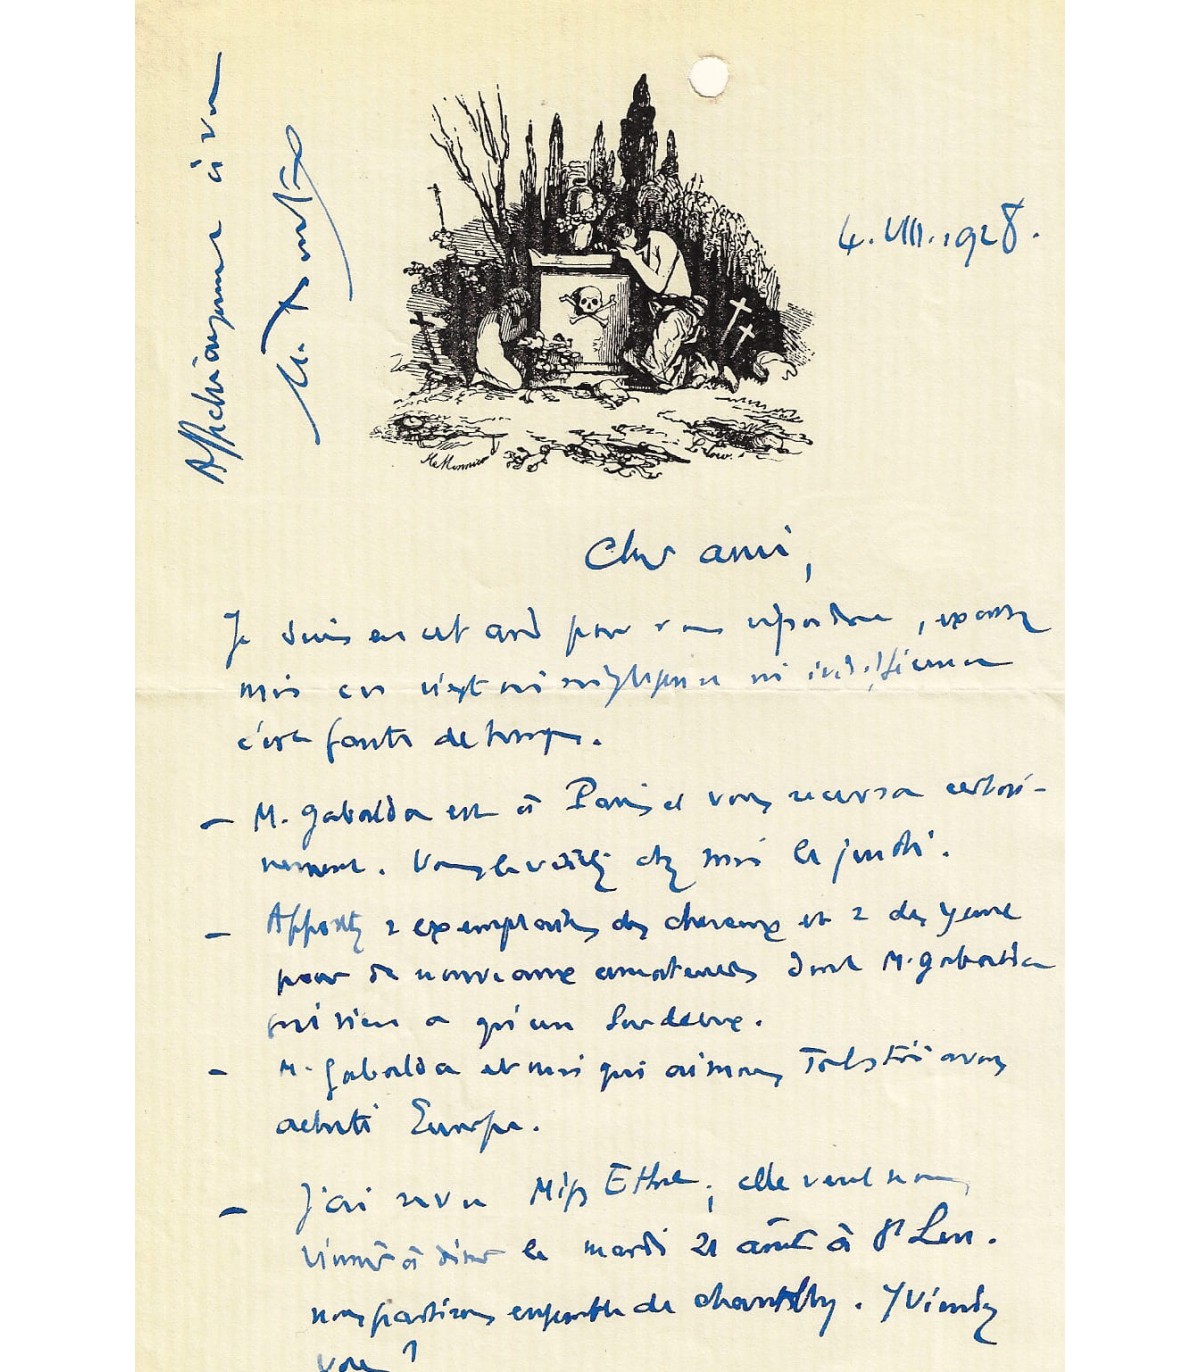 4.VIII.1928.
Cher ami,
Je suis en retard pour vous répondre, excusez
moi ce n'est ni négligence ni indifférence
c'est faute de temps.
– M. Gabalda est à Paris et vous recevra certai-
nement. Vous le verrez chez moi le jeudi.
– Apportez 2 exemplaires des cheveux et 2 des yeux
pour de nouveaux amateurs dont M. Gabalda
qui n'en a qu'un sur deux.
– M. Gabalda et moi qui aimons Tolstoï avons
acheté Europe.
– J'ai revu Miss Ethel ; elle veut nous
inviter à dîner le mardi 21 août à St Leu.
nous partirons ensemble de Chantilly. Y viendrez
vous ?
Affectueusement à vous
Me Monnier